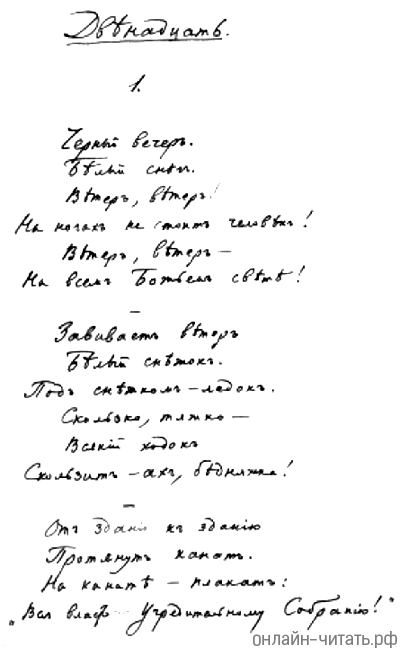 Двѣнадцать.
1.
Черный вечеръ.
Бѣлый снѣгъ.
Вѣтеръ, вѣтеръ!
На ногахъ не стоитъ человѣкъ!
Вѣтеръ, вѣтеръ —
На всемъ Божьемъ свѣтѣ!
—
Завиваетъ вѣтеръ
Бѣлый снѣжокъ.
Подъ снѣжкомъ – ледокъ.
Скользко, тяжко —
Всякій ходокъ
Скользитъ – ахъ, бѣдняжка!
—
Отъ зданія къ зданію
Протянутъ канатъ.
На канатѣ – плакатъ:
„Вся власть Учредительному Собранію!"
онлайн-читать.рф